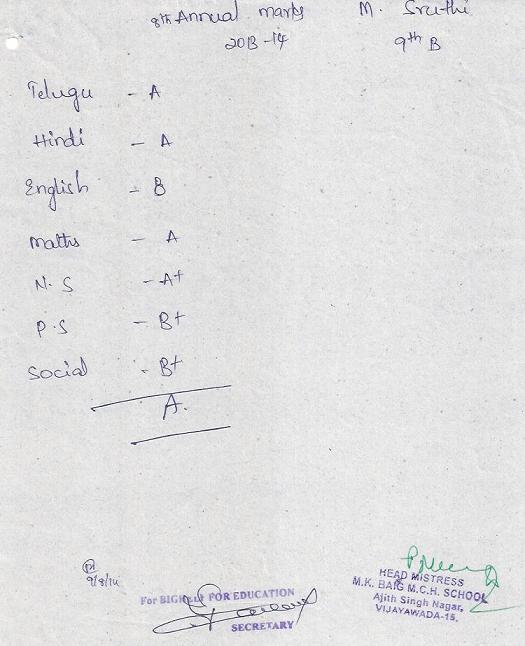 8th Annual marks M. Sruthi
2013-14 9th B
Telugu - A
Hindi - A
English - B
Maths - A
N.S - A+
P.S - B+
Social - B+
A.
9/8/14
For BIG HELP FOR EDUCATION
SECRETARY
HEAD MISTRESS
M.K. BAIG M.C.H. SCHOOL
Ajith Singh Nagar,
VIJAYAWADA-15.